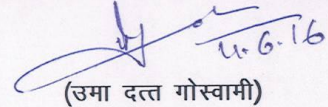 11.6.16
(उमा दत्त गोस्वामी)